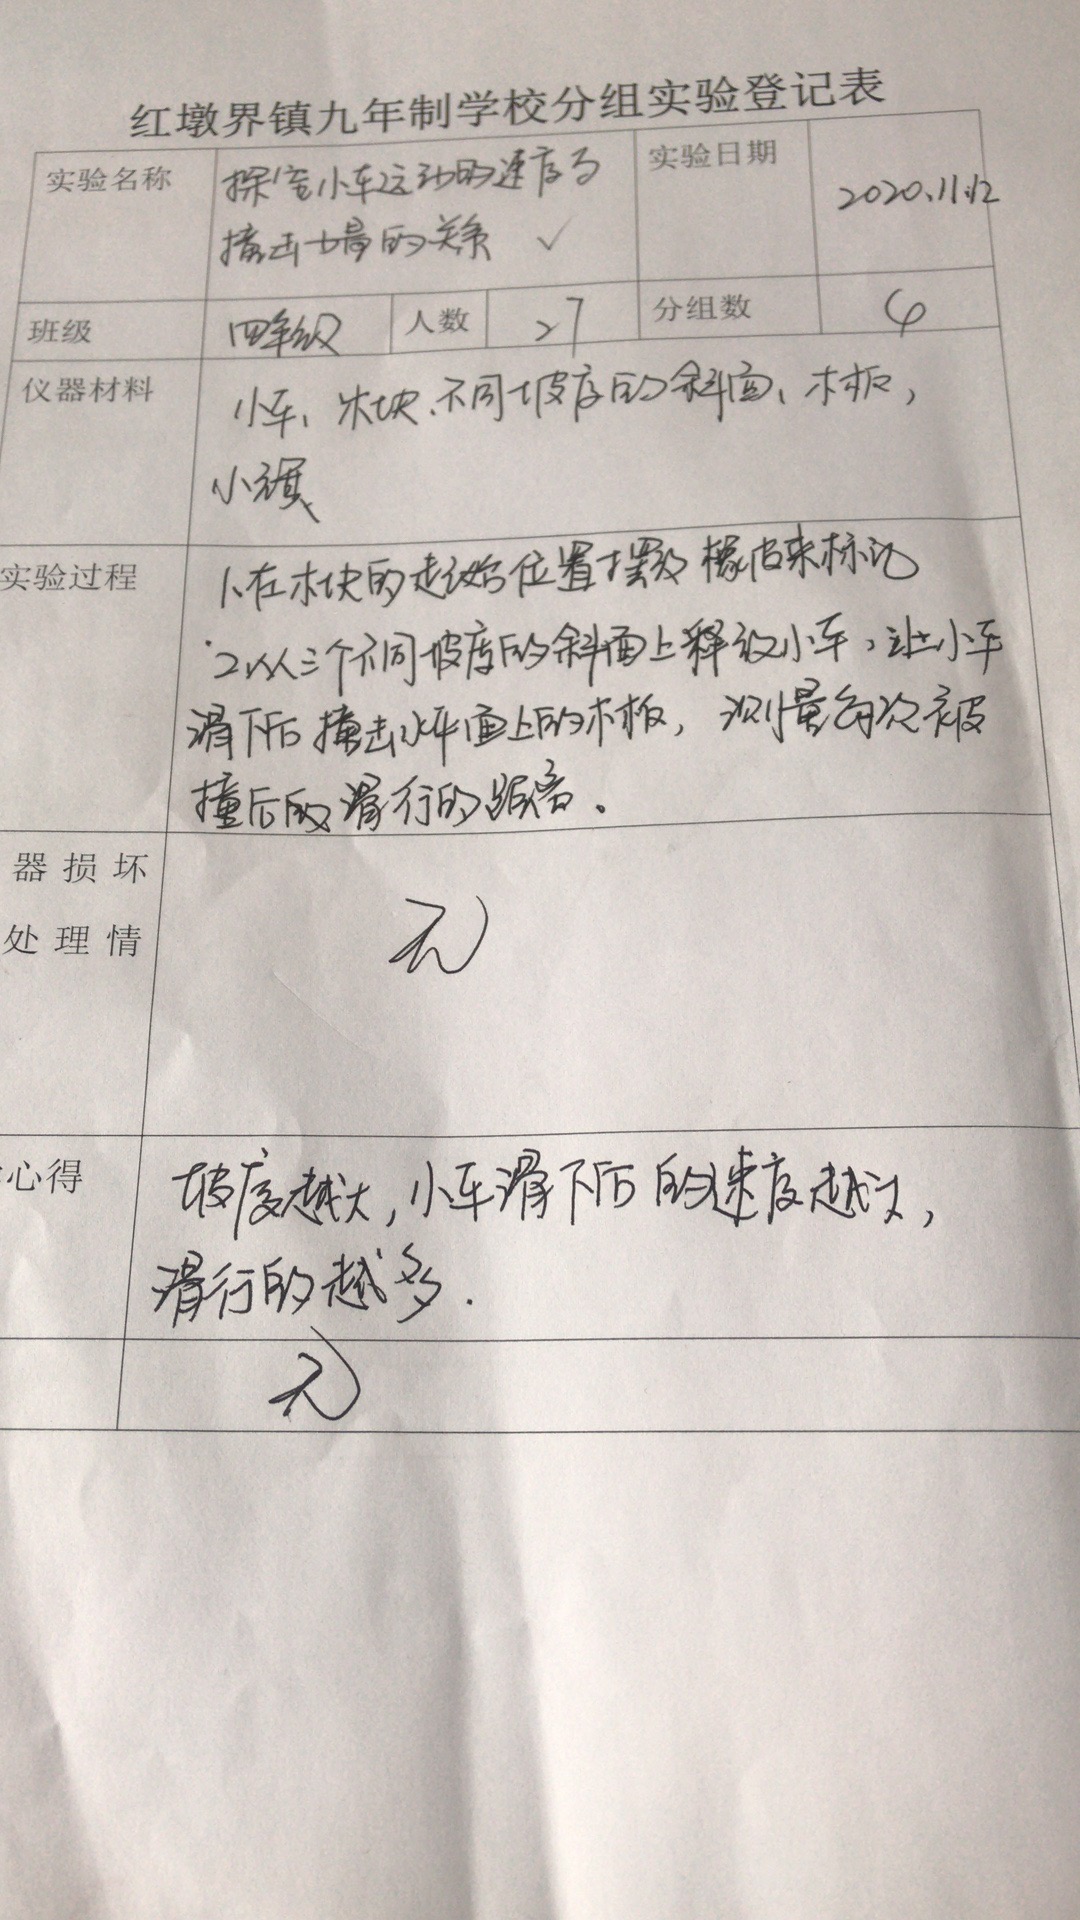 红墩界镇九年制学校分组实验登记表
实验名称 探究小车运动的速度与 实验日期 2020.11.12
撞击力量的关系 ✓
班级 四年级 人数 27 分组数 6
仪器材料 小车、木块、不同坡度的斜面、木板,
小旗
实验过程 1、在木块的起始位置摆放橡皮来标记
2、从三个不同坡度的斜面上释放小车,让小车
滑下后撞击水平面上的木板,测量每次被
撞后的滑行的距离.
器损坏 无
处理情
心得 坡度越大,小车滑下后的速度越大,
滑行的越多.
无